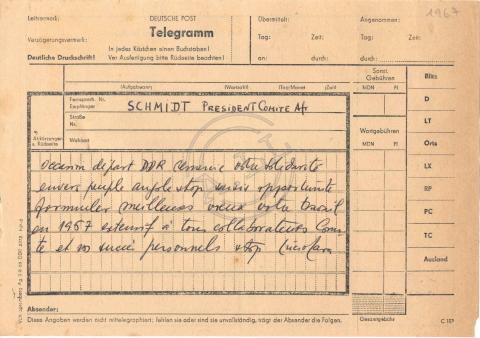 1967
Leitvermerk:
DEUTSCHE POST
Übermittelt:
Angenommen:
Telegramm
Verzögerungsvermerk:
Tag: Zeit: Tag: Zeit:
In jedes Kästchen einen Buchstaben!
Deutliche Druckschrift!
Vor Ausfertigung bitte Rückseite beachten!
an: durch: durch:
(Aufgabeort) (Wortzahl) (Tag/Monat) (Zeit)
Sonst. Gebühren
MDN PI
Blitz
Fernspr.
Empfänger
SCHMIDT PRESIDENT COMITE Af
D
Straße
Nr.
LT
Abkürzungen
s. Rückseite
Wortgebühren
Ort
MDN PI
Orts
occasion départ DDR remercie votre solidarité
LX
envers peuple angolais stop saisis opportunité
RP
formuler meilleurs voeux votre travail
PC
en 1967 extensif à tous collaborateurs Comi
TC
té et vos succès personnels stop Lucio Lara
Ausland
Absender:
Diese Angaben werden nicht mittelegraphiert; fehlen sie oder sind sie unvollständig, trägt der Absender die Folgen.
Gesamtgebühr
C 187